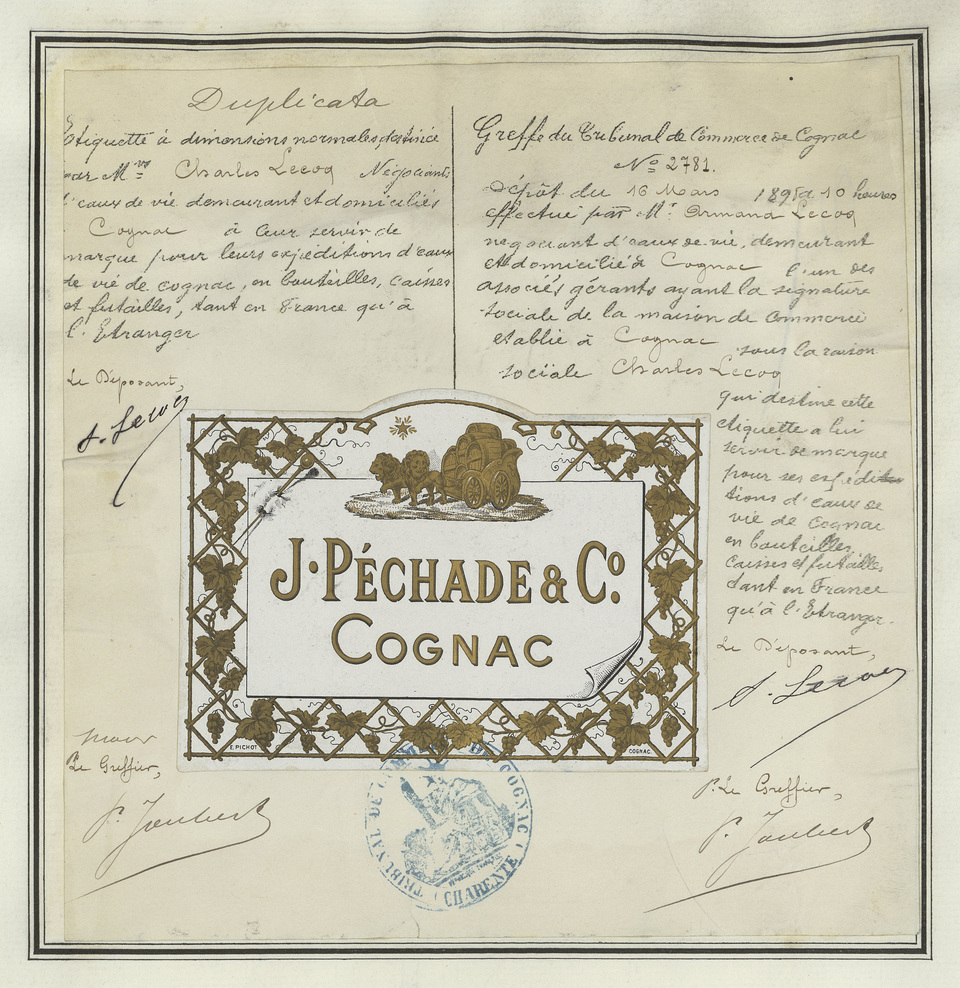 Duplicata
Etiquette à dimensions normales destinée
par Mrs Charles Lecoq Négociants
d'eaux de vie demeurant et domiciliés
Cognac à leur servir de
marque pour leurs expéditions d'eaux
de vie de cognac, en bouteilles, caisses
et futailles, tant en France qu'à
l'Etranger
Le Déposant,
A. Lecoq
Greffe du Tribunal de Commerce de Cognac
No 2781.
Dépôt du 16 Mars 1895 à 10 heures
effectué par Mr. Armand Lecoq
negociant d'eaux de vie, demeurant
et domicilié à Cognac l'un des
associés gérants ayant la signature
sociale de la maison de Commerce
etablie à Cognac sous la raison
sociale Charles Lecoq
qui destine cette
étiquette a lui
servir de marque
pour ses expédi-
tions d'eaux de
vie de Cognac
en bouteilles,
caisses et futailles
tant en France
qu'à l'Etranger.
Le Déposant,
A. Lecoq
J. PÉCHADE & Co.
COGNAC
E. PICHOT
COGNAC.
pour
Le Greffier,
P. Joubert
P. Le Greffier,
P. Joubert
TRIBUNAL DE COMM DE COGNAC
(CHARENTE)